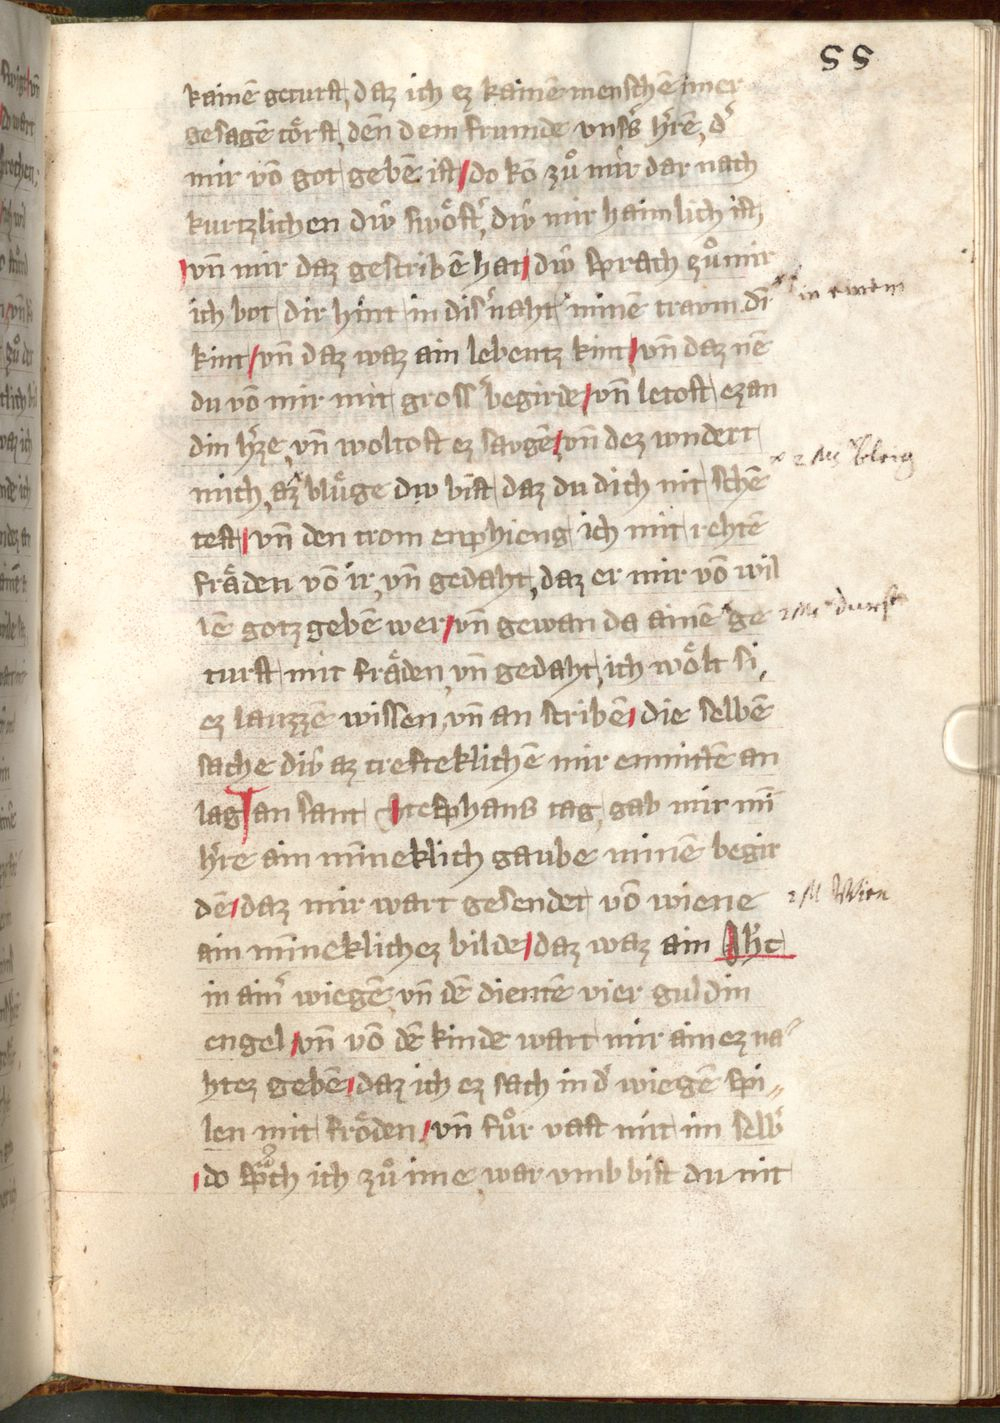 55
kainē geturst, daz ich ez kainē menschē imer
gesagē törst, dēn dem frunde vnsˀs hˀrē, dˀ
mir vō got gebē ist / do kō zů mir dar nach
kurtzlichen diw swöstˀ, diw mir haimlich ist,
/ vn̄ mir daz gescribē hat / diw sprach zů mir
ich bot dir hint in disˀ naht minē travm dī in einem
kint / vn̄ daz waz ain lebentz kint / vn̄ daz nē
du vō mir mit grossˀ begirde / vn̄ letost ez an
din hˀze, vn̄ woltost ez saugē / vn̄ dez wndert
mich, az blüge diw bist daz du dich nit schē
test / vn̄ den trom enphieng ich mit rehtē
fräden vō ir, vn̄ gedaht, daz er mir vō wil
lē gotz gebē wer / vn̄ gewan da ainē ge durst
turst mit fräden, vn̄ gedaht, ich wölt si,
ez lauzzē wissen, vn̄ an scribē / die selbē
sache diw az crefteklichē mir enmittē an
lag / an sant Stephans tag, gab mir mī
hˀre ain mīneklich gaube minē begir
dē / daz mir wart gesendet vō wiene Wien
ain mīneklichez bilde / daz waz ain Jhc
in ainˀ wiegē, vn̄ dē dientē vier guldin
engel / vn̄ vō dē kinde wart mir ainez na
htez gebē / daz ich ez sach in dˀ wiegē spi
len mit fröden / vn̄ fůr vast mit im selbˀ
/ do spͣch ich zů ime, war vmb bist du nit